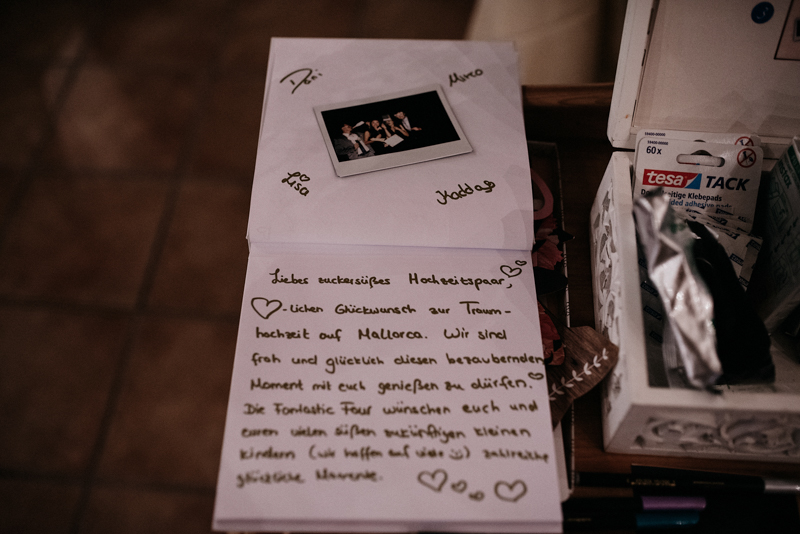 Doni
Mirco
Lisa
Liebes zuckersüßes Hochzeitspaar,
-lichen Glückwunsch zur Traum-
hochzeit auf Mallorca. Wir sind
froh und glücklich diesen bezaubernden
Moment mit euch genießen zu dürfen.
Die Fantastic Four wünschen euch und
euren vielen süßen zukünftigen kleinen
Kindern (wir hoffen auf viele :)) zahlreiche
glückliche Momente.
60x
tesa TACK